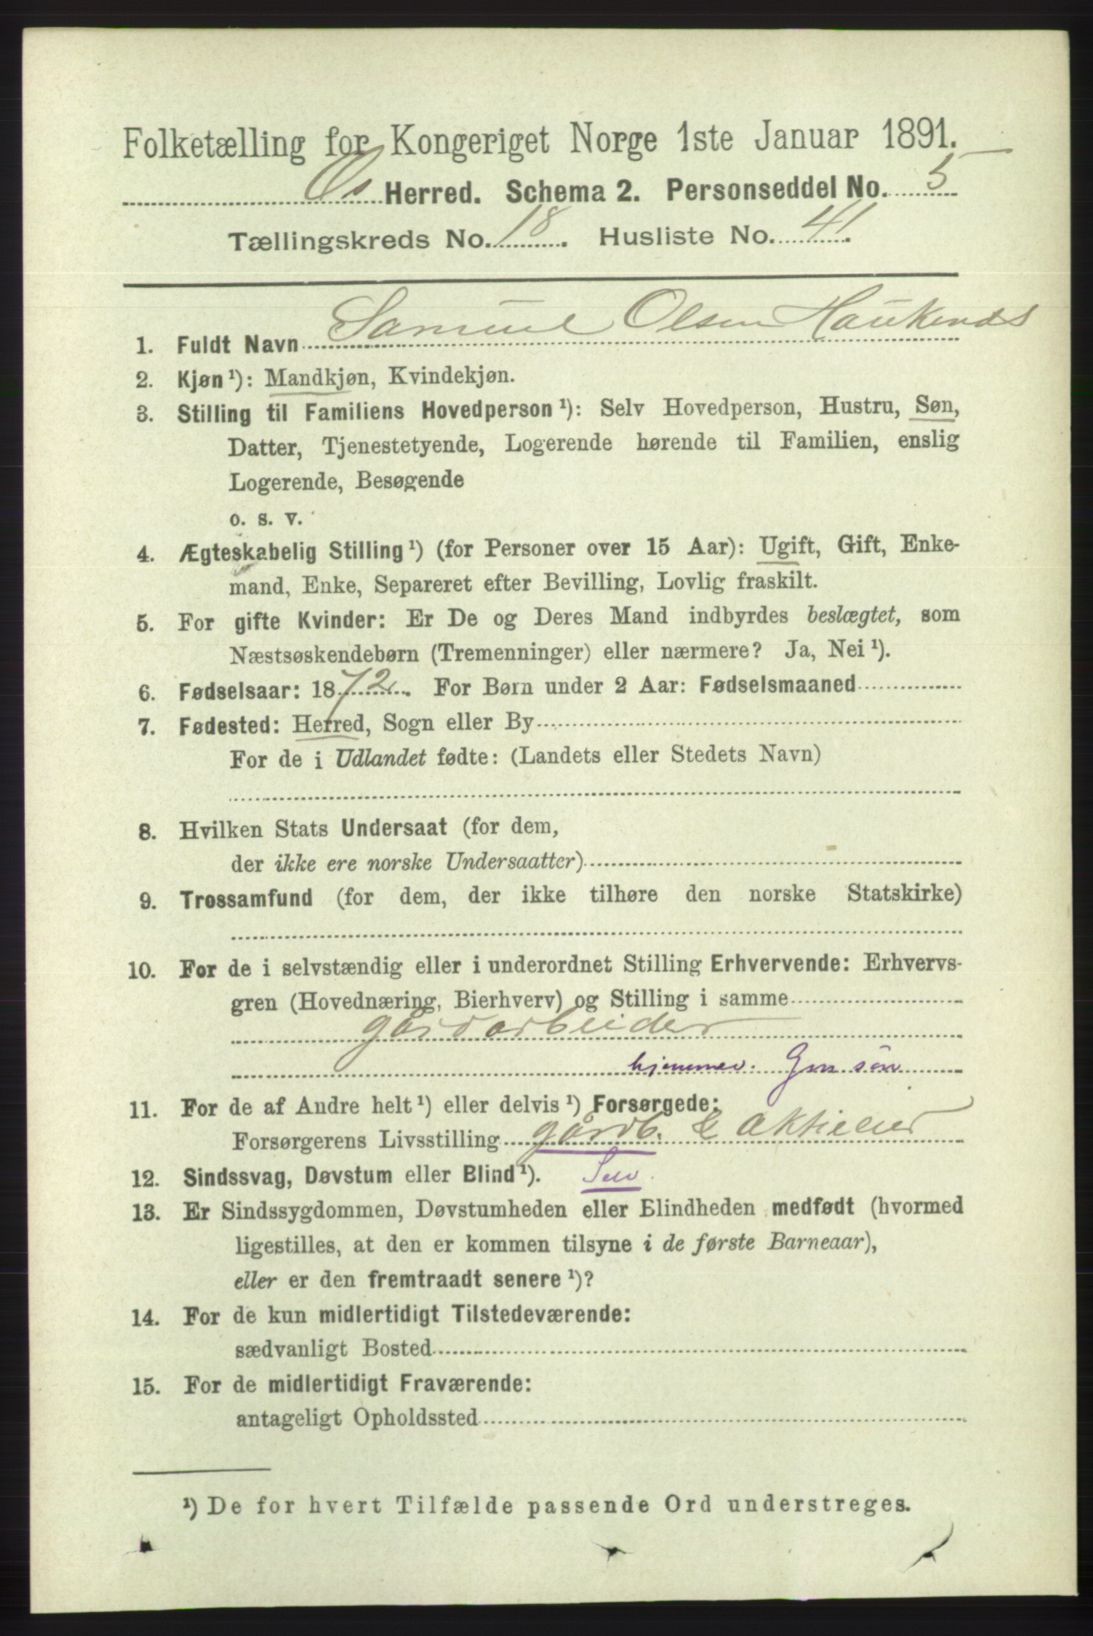 Folketælling for Kongeriget Norge 1ste Januar 1891.
Os Herred. Schema 2. Personseddel No. 5
Tællingskreds No. 18. Husliste No. 41.
1. Fuldt Navn Samuel Olsen Haukenæs
2. Kjøn¹): Mandkjøn, Kvindekjøn.
3. Stilling til Familiens Hovedperson¹): Selv Hovedperson, Hustru, Søn,
Datter, Tjenestetyende, Logerende hørende til Familien, enslig
Logerende, Besøgende
o. s. v.
4. Ægteskabelig Stilling¹) (for Personer over 15 Aar): Ugift, Gift, Enke-
mand, Enke, Separeret efter Bevilling, Lovlig fraskilt.
5. For gifte Kvinder: Er De og Deres Mand indbyrdes beslægtet, som
Næstsøskendebørn (Tremenninger) eller nærmere? Ja, Nei¹).
6. Fødselsaar: 1872. For Børn under 2 Aar: Fødselsmaaned
7. Fødested: Herred, Sogn eller By
For de i Udlandet fødte: (Landets eller Stedets Navn)
8. Hvilken Stats Undersaat (for dem,
der ikke ere norske Undersaatter)
9. Trossamfund (for dem, der ikke tilhøre den norske Statskirke)
10. For de i selvstændig eller i underordnet Stilling Erhvervende: Erhvervs-
gren (Hovednæring, Bierhverv) og Stilling i samme
gårdarbeider
hjemmev. søn
11. For de af Andre helt¹) eller delvis¹) Forsørgede:
Forsørgerens Livsstilling gårdb. &
12. Sindssvag, Døvstum eller Blind¹).
13. Er Sindssygdommen, Døvstumheden eller Blindheden medfødt (hvormed
ligestilles, at den er kommen tilsyne i de første Barneaar),
eller er den fremtraadt senere¹)?
14. For de kun midlertidigt Tilstedeværende:
sædvanligt Bosted
15. For de midlertidigt Fraværende:
antageligt Opholdssted
¹) De for hvert Tilfælde passende Ord understreges.